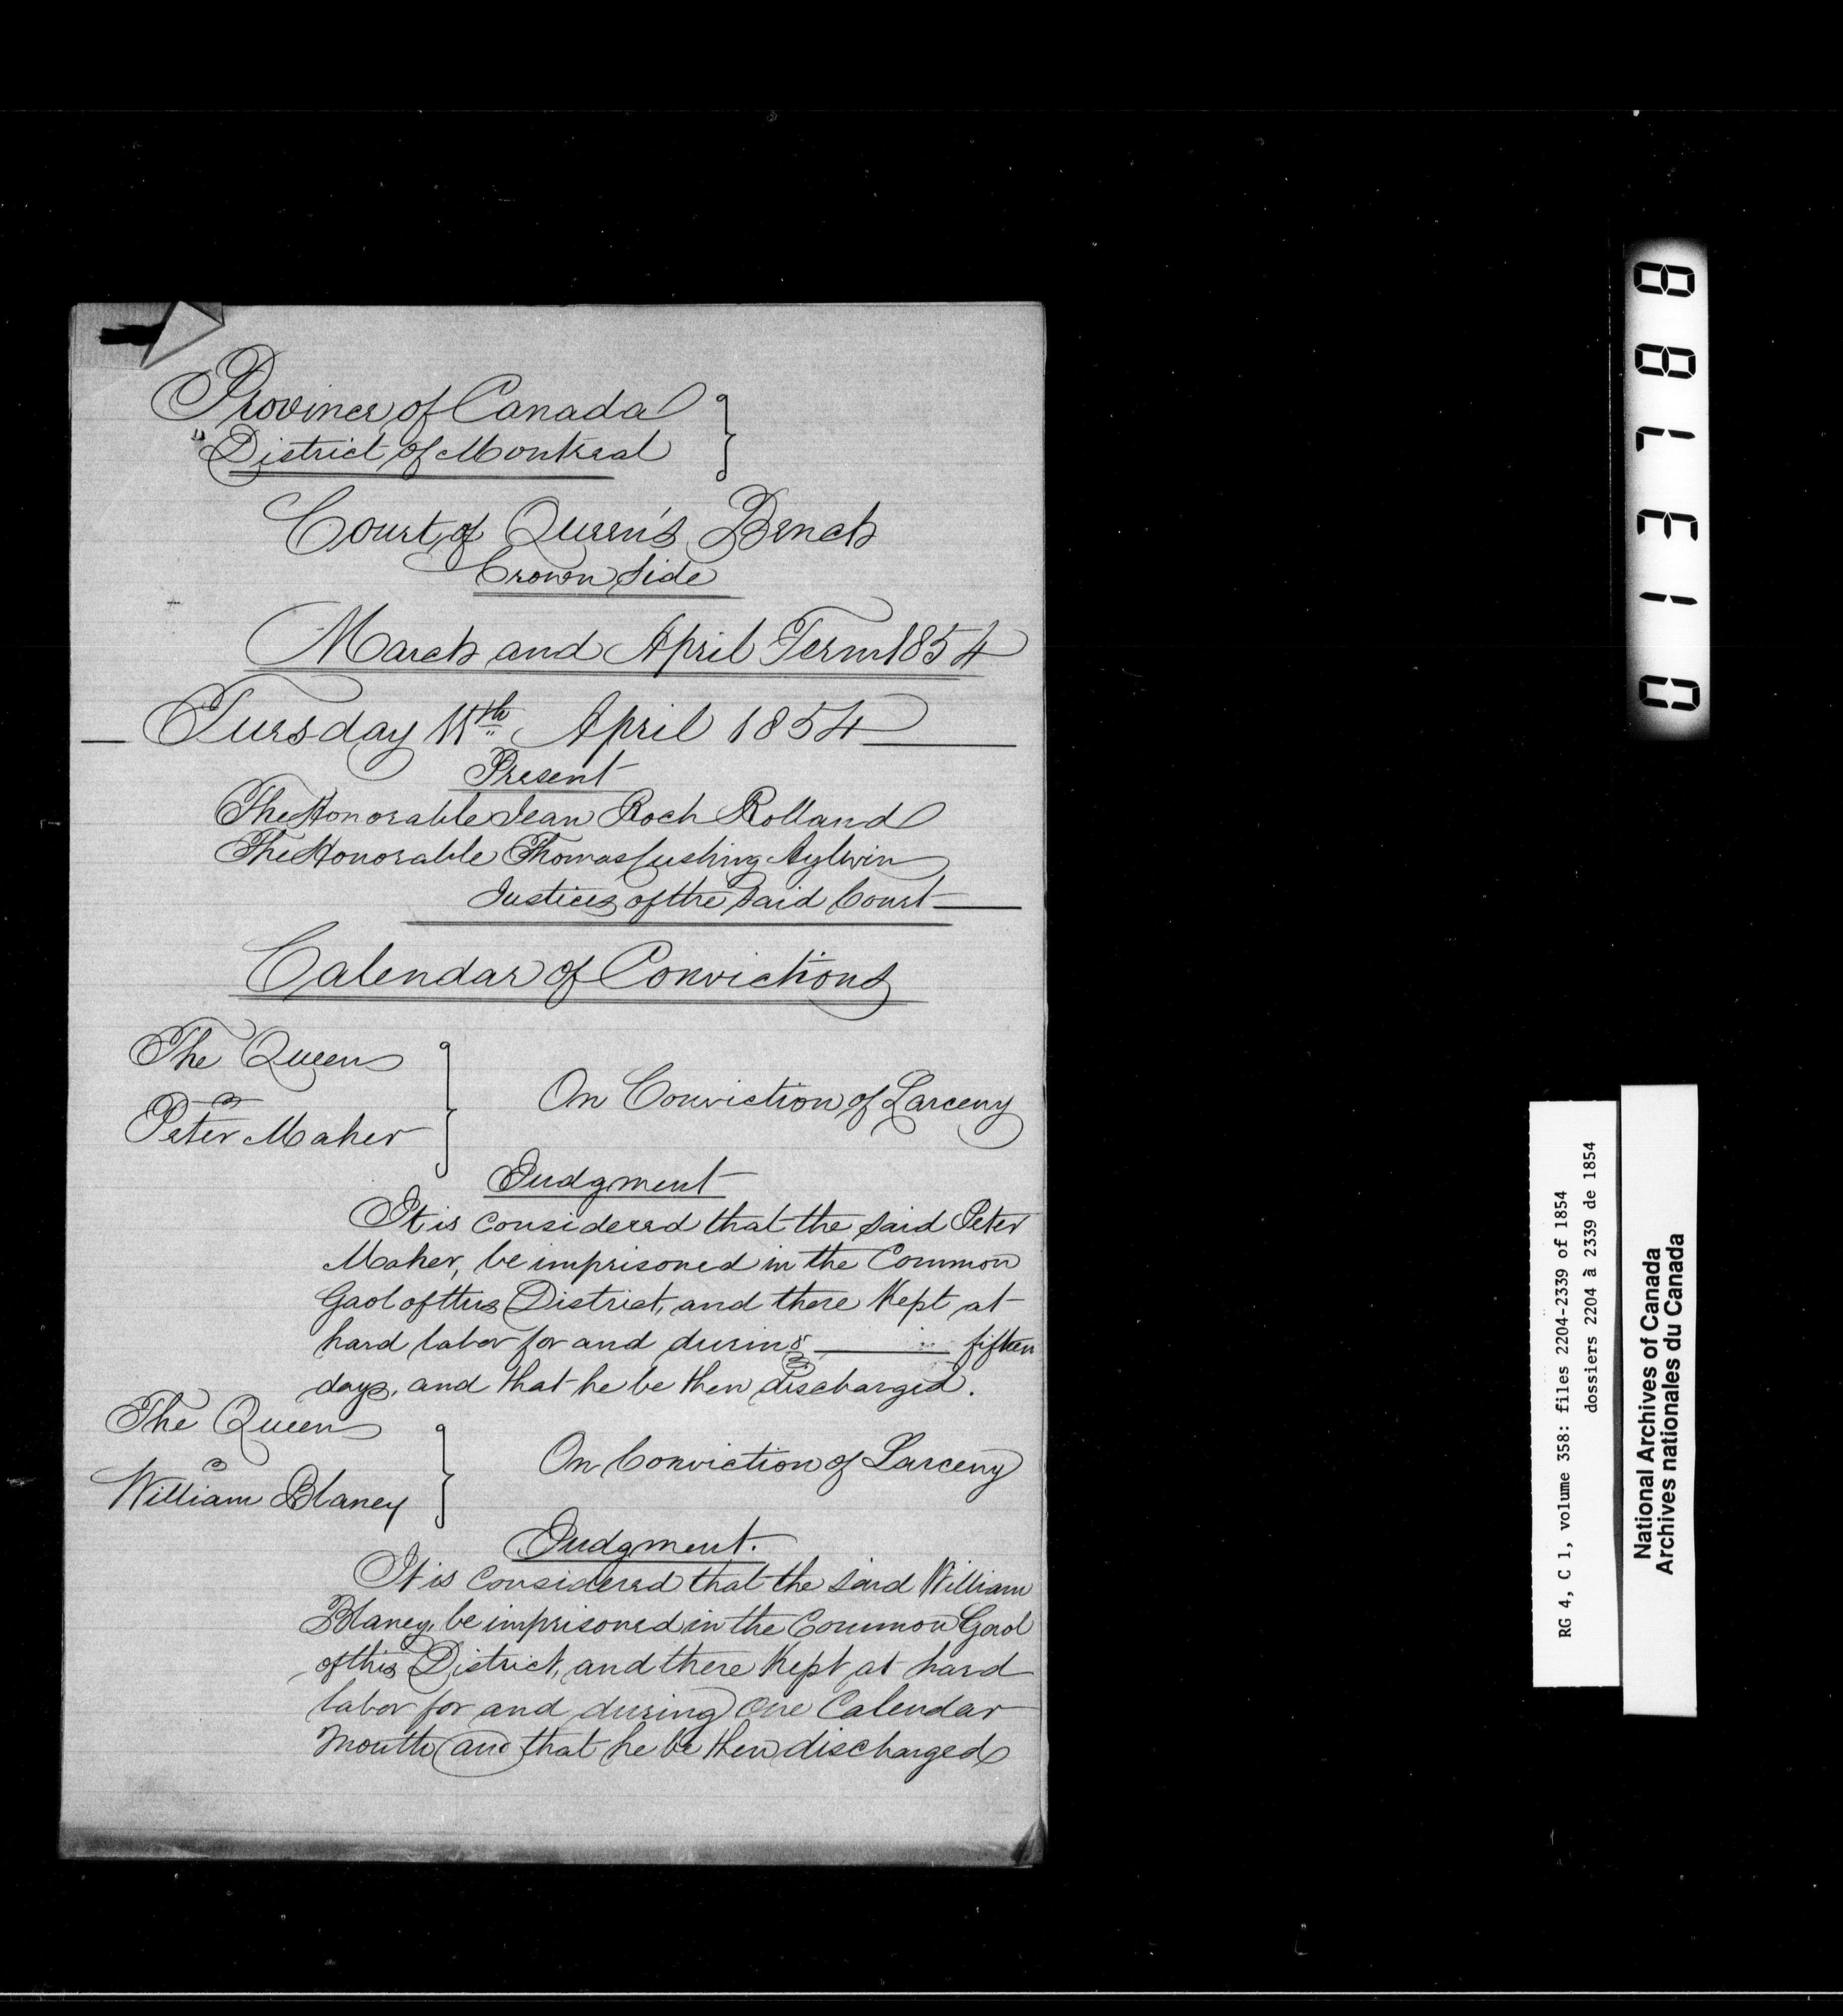 Province of Canada
District of Montreal
Court of Queen's Bench
Crown Side
March and April Term 1854
Tuesday 11th April 1854
Present
The Honorable Jean Roch Rolland
The Honorable Thomas Cushing Aylwin
Justices of the said Court
Calendar of Convictions
The Queen
vs
Peter Maher
On Conviction of Larceny
Judgment
It is considered that the said Peter
Maher, be imprisoned in the Common
Gaol of this District, and there Kept at
hard labor for and during fifteen
days, and that he be then discharged.
The Queen
vs
William Blaney
On Conviction of Larceny
Judgment.
It is considered that the said William
Blaney, be imprisoned in the Common Gaol
of this District, and there Kept at hard
labor for and during One Calendar
Month and that he be then discharged
013788
RG 4, C 1, volume 358: files 2204-2339 of 1854
dossiers 2204 à 2339 de 1854
National Archives of Canada
Archives nationales du Canada